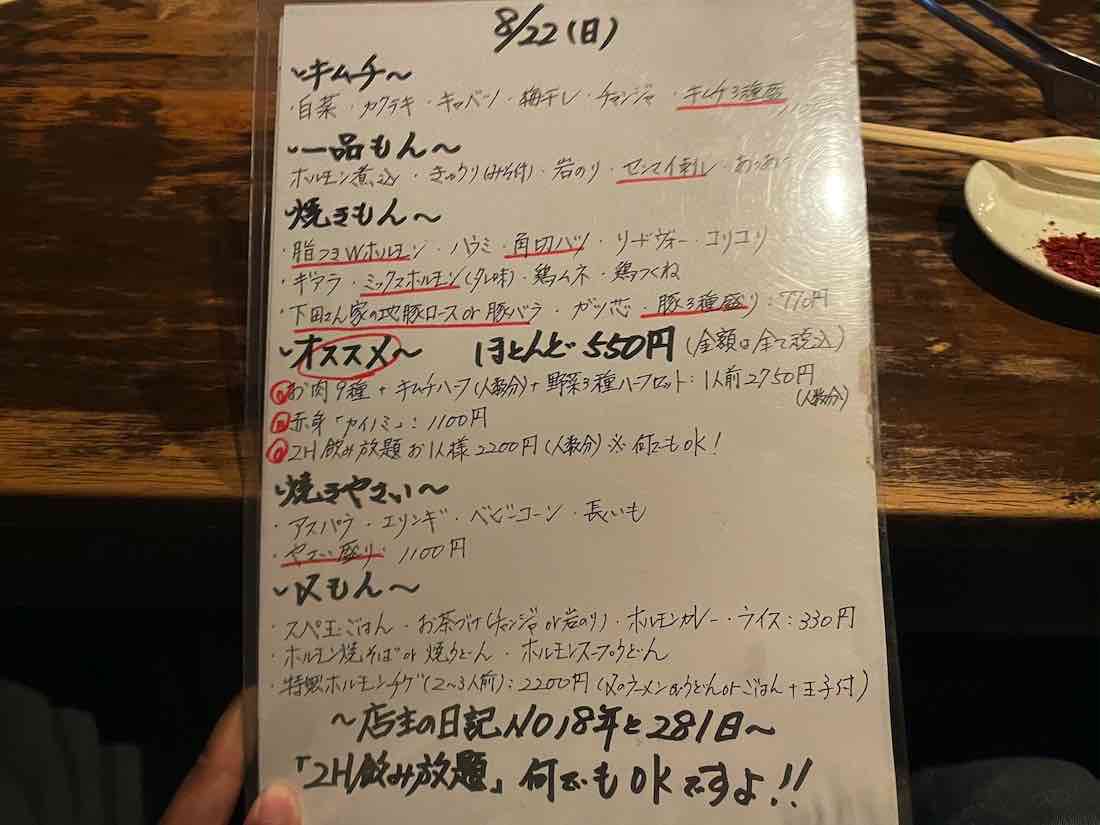 8/22(日)
~キムチ~
・白菜・カクテキ・キャベツ・梅干し・チャンジャ・キムチ3種盛
~一品もん~
ホルモン煮込・きゅうり(みそ付)・岩のり・センマイ刺し
~焼きもん~
・脂つきWホルモン・ハラミ・角切ハツ・リードヴォー・コリコリ
・ギアラ・ミックスホルモン(タレ味)・鶏ムネ・鶏つくね
・下田さん家の地豚ロースor豚バラ・ガツ芯・豚3種盛り:770円
~オススメ~ ほとんど550円(金額は全て税込)
お肉9種+キムチハーフ(人数分)+野菜3種ハーフセット:1人前2750円
(人数分)
赤身「カイノミ」:1100円
2H飲み放題お1人様2200円(人数分)※何でもOK!
~焼きやさい~
・アスパラ・エリンギ・ベビーコーン・長いも
・やさい盛り 1100円
~〆もん~
・スペ玉ごはん・お茶づけ(チャンジャor岩のり)・ホルモンカレー・ライス:330円
・ホルモン焼そばor焼うどん・ホルモンスープうどん
・特製ホルモンチゲ(2~3人前):2200円(〆のラーメンorうどんorごはん+玉子付)
~店主の日記NO18年と281日~
「2H飲み放題」何でもOKですよ!!